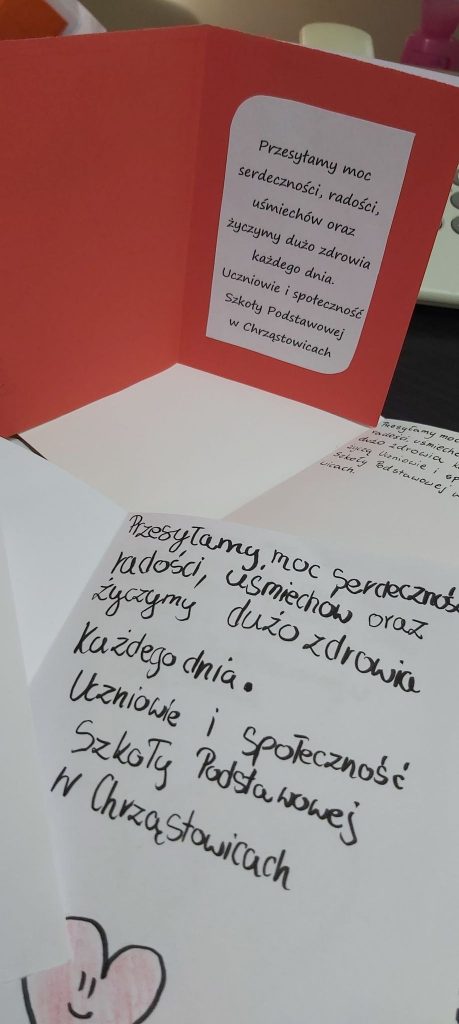 Przesyłamy moc
serdeczności, radości,
uśmiechów oraz
życzymy dużo zdrowia
każdego dnia.
Uczniowie i społeczność
Szkoły Podstawowej
w Chrząstowicach
Przesyłamy moc
radość, uśmiech
dużo zdrowia k
życzą Uczniowie i sp
Szkoły Podstawowej w
wicach.
Przesyłamy, moc serdeczność
radości, uśmiechów oraz
życzymy dużo zdrowia
każdego dnia.
Uczniowie i społeczność
Szkoły Podstawowej
w Chrząstowicach